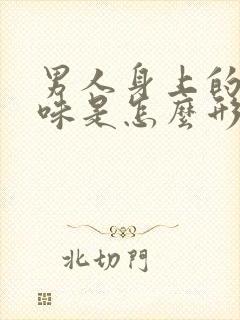 男人身上的
味是怎麼形
北切門